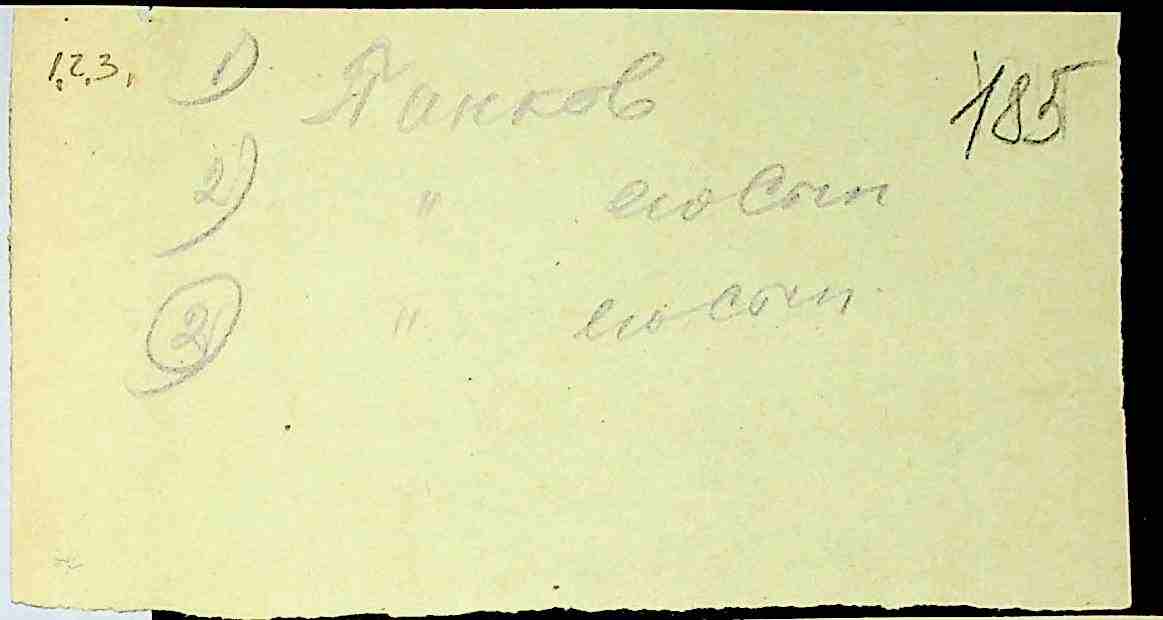 1,2,3, 1) Панков 185
2) " его Сын
2) " его сын